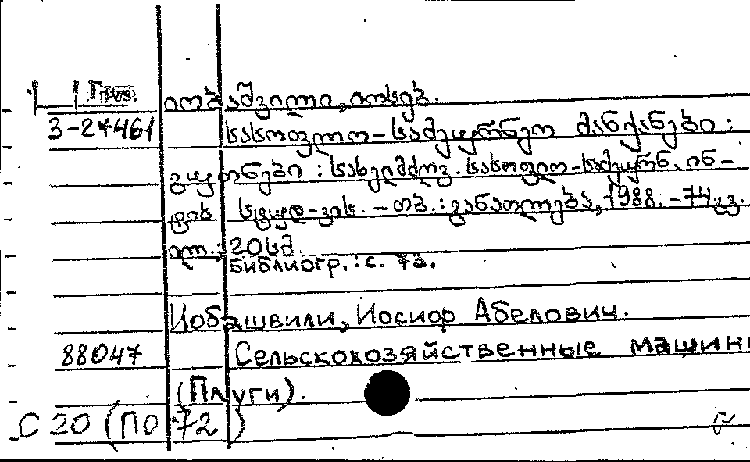 Груз. იობაშვილი, იოსებ.
3-27461 სასოფლო-სამეურნეო მანქანები:
გუთნები: სახელმძღვ. სასოფლო-სამეურნ. ინ-
ტის სტუდ-ვის. - თბ.: განათლება, 1988. - 74 გვ.
ილ.; 20 სმ.
Библиогр.: с. 73.
Иобашвили, Иосиор Абелович.
88047 Сельскохозяйственные машины
(Плуги).
С 20 (ПО 72)